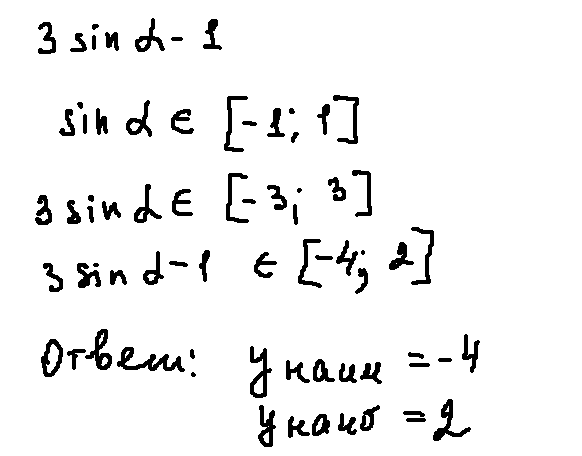 3 sin α - 1
sin α ∈ [-1; 1]
3 sin α ∈ [-3; 3]
3 sin α - 1 ∈ [-4; 2]
Ответ: y наим = -4
y наиб = 2